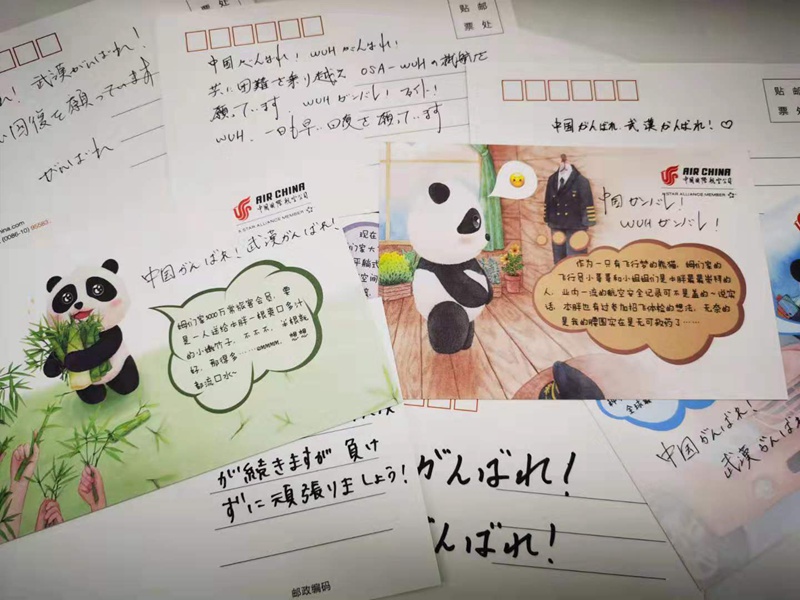 武漢がんばれ!
回復を願っています
がんばれ
贴 邮
票 处
中国がんばれ! WUHがんばれ!
共に困難を乗り越え OSA-WUHの就航を
願っています. WUHガンバレ ファイト!
WUH. 一日も早い回復を願っています
贴 邮
票 处
中国がんばれ. 武漢がんばれ!♡
AIR CHINA
中国国際航空公司
A STAR ALLIANCE MEMBER
中国がんばれ! 武漢がんばれ!
(0086-10) 95583
AIR CHINA
中国国際航空公司
A STAR ALLIANCE MEMBER
中国ガンバレ!
WUHガンバレ!
作为一只有飞行梦的熊猫,
飞行员小哥哥和小姐姐们是小胖最最崇拜的
人,业内一流的航空安全记录可不是盖的~说实
话,本胖也有过参加招飞体检的想法,无奈的
是我的腰围实在是无可救药了……
1000万常旅客会员,要
是一人送给小胖一根爽口多汁
的小嫩竹子,不不不,半根就
好,那得多……
都流口水~
想想
现在
が続きますが 負け
ずに頑張りましょう!
がんばれ!
んばれ!
中国がんばれ!
武漢がんばれ
邮政编码